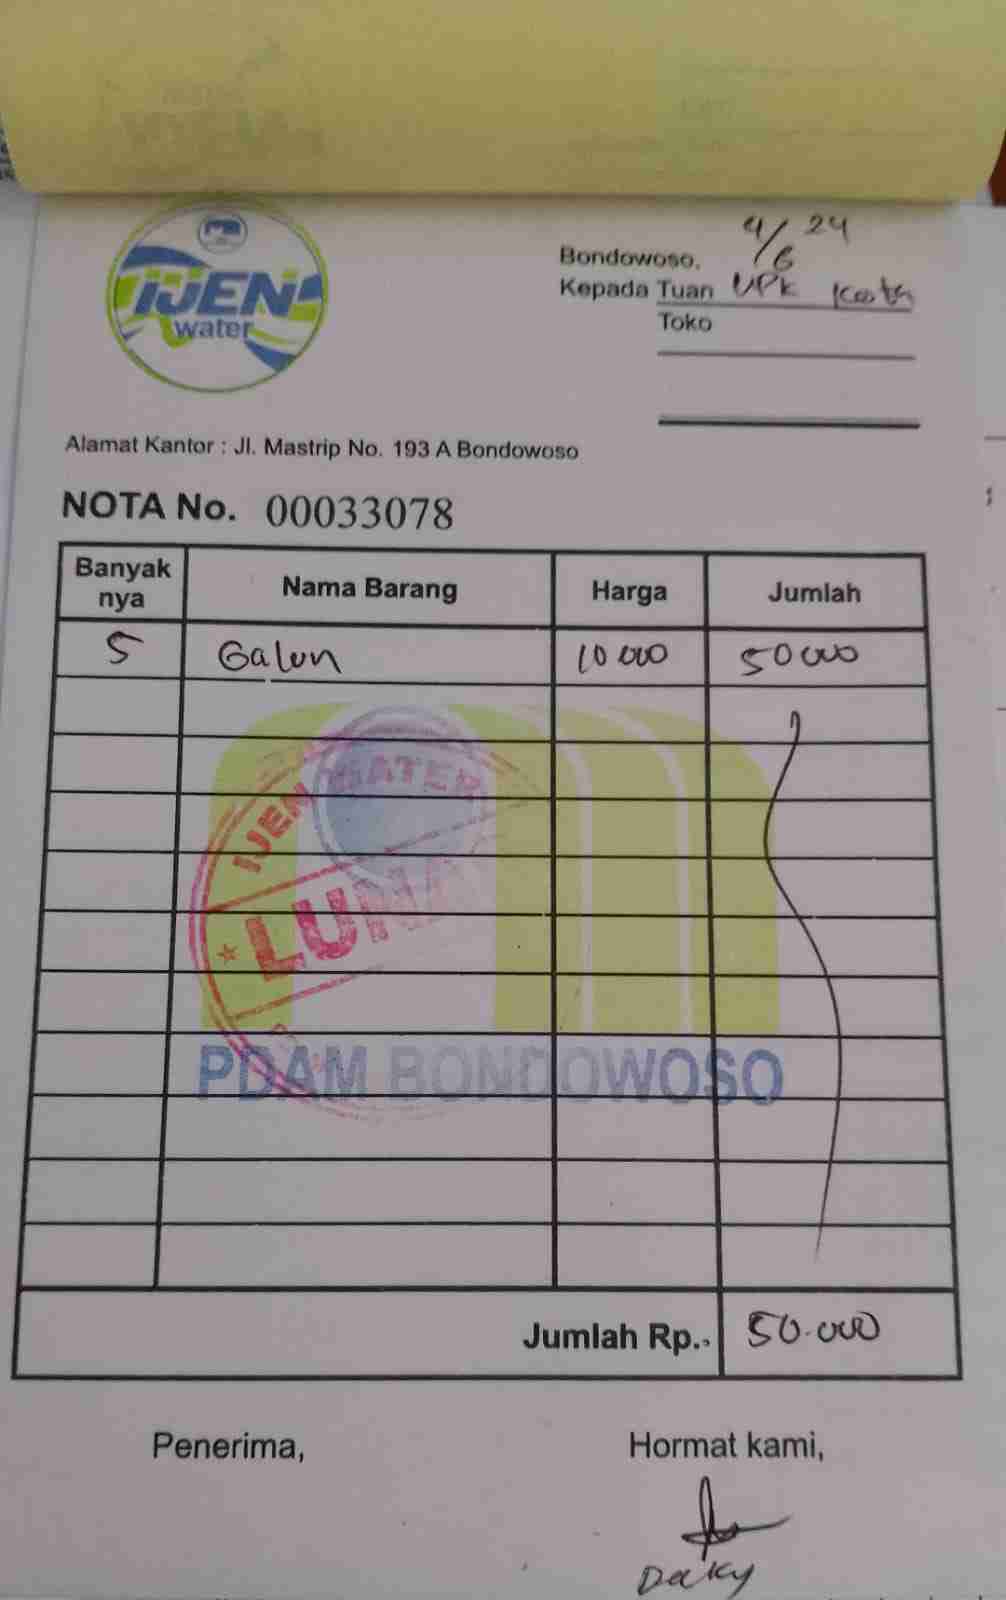 IJEN
water
Bondowoso, 4/6 24
Kepada Tuan UPK Kota
Toko
Alamat Kantor : Jl. Mastrip No. 193 A Bondowoso
NOTA No. 00033078
Banyak nya Nama Barang Harga Jumlah
5 Galon 10 000 50 000
IJEN WATER
LUNAS
PDAM BONDOWOSO
Jumlah Rp., 50.000
Penerima, Hormat kami,
Decky